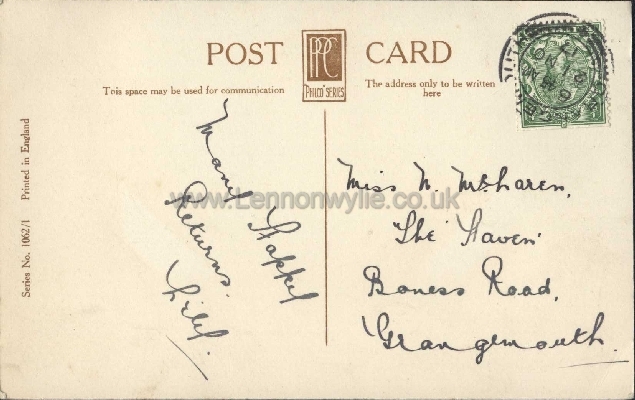 POST CARD
PPC
PHILCO SERIES
This space may be used for communication
The address only to be written
here
Printed in England
Series No. 1062/1
Many Happy
Returns.
www.Lennonwylie.co.uk
Miss N. McLaren,
"The Haven"
Boness Road,
Grangemouth.